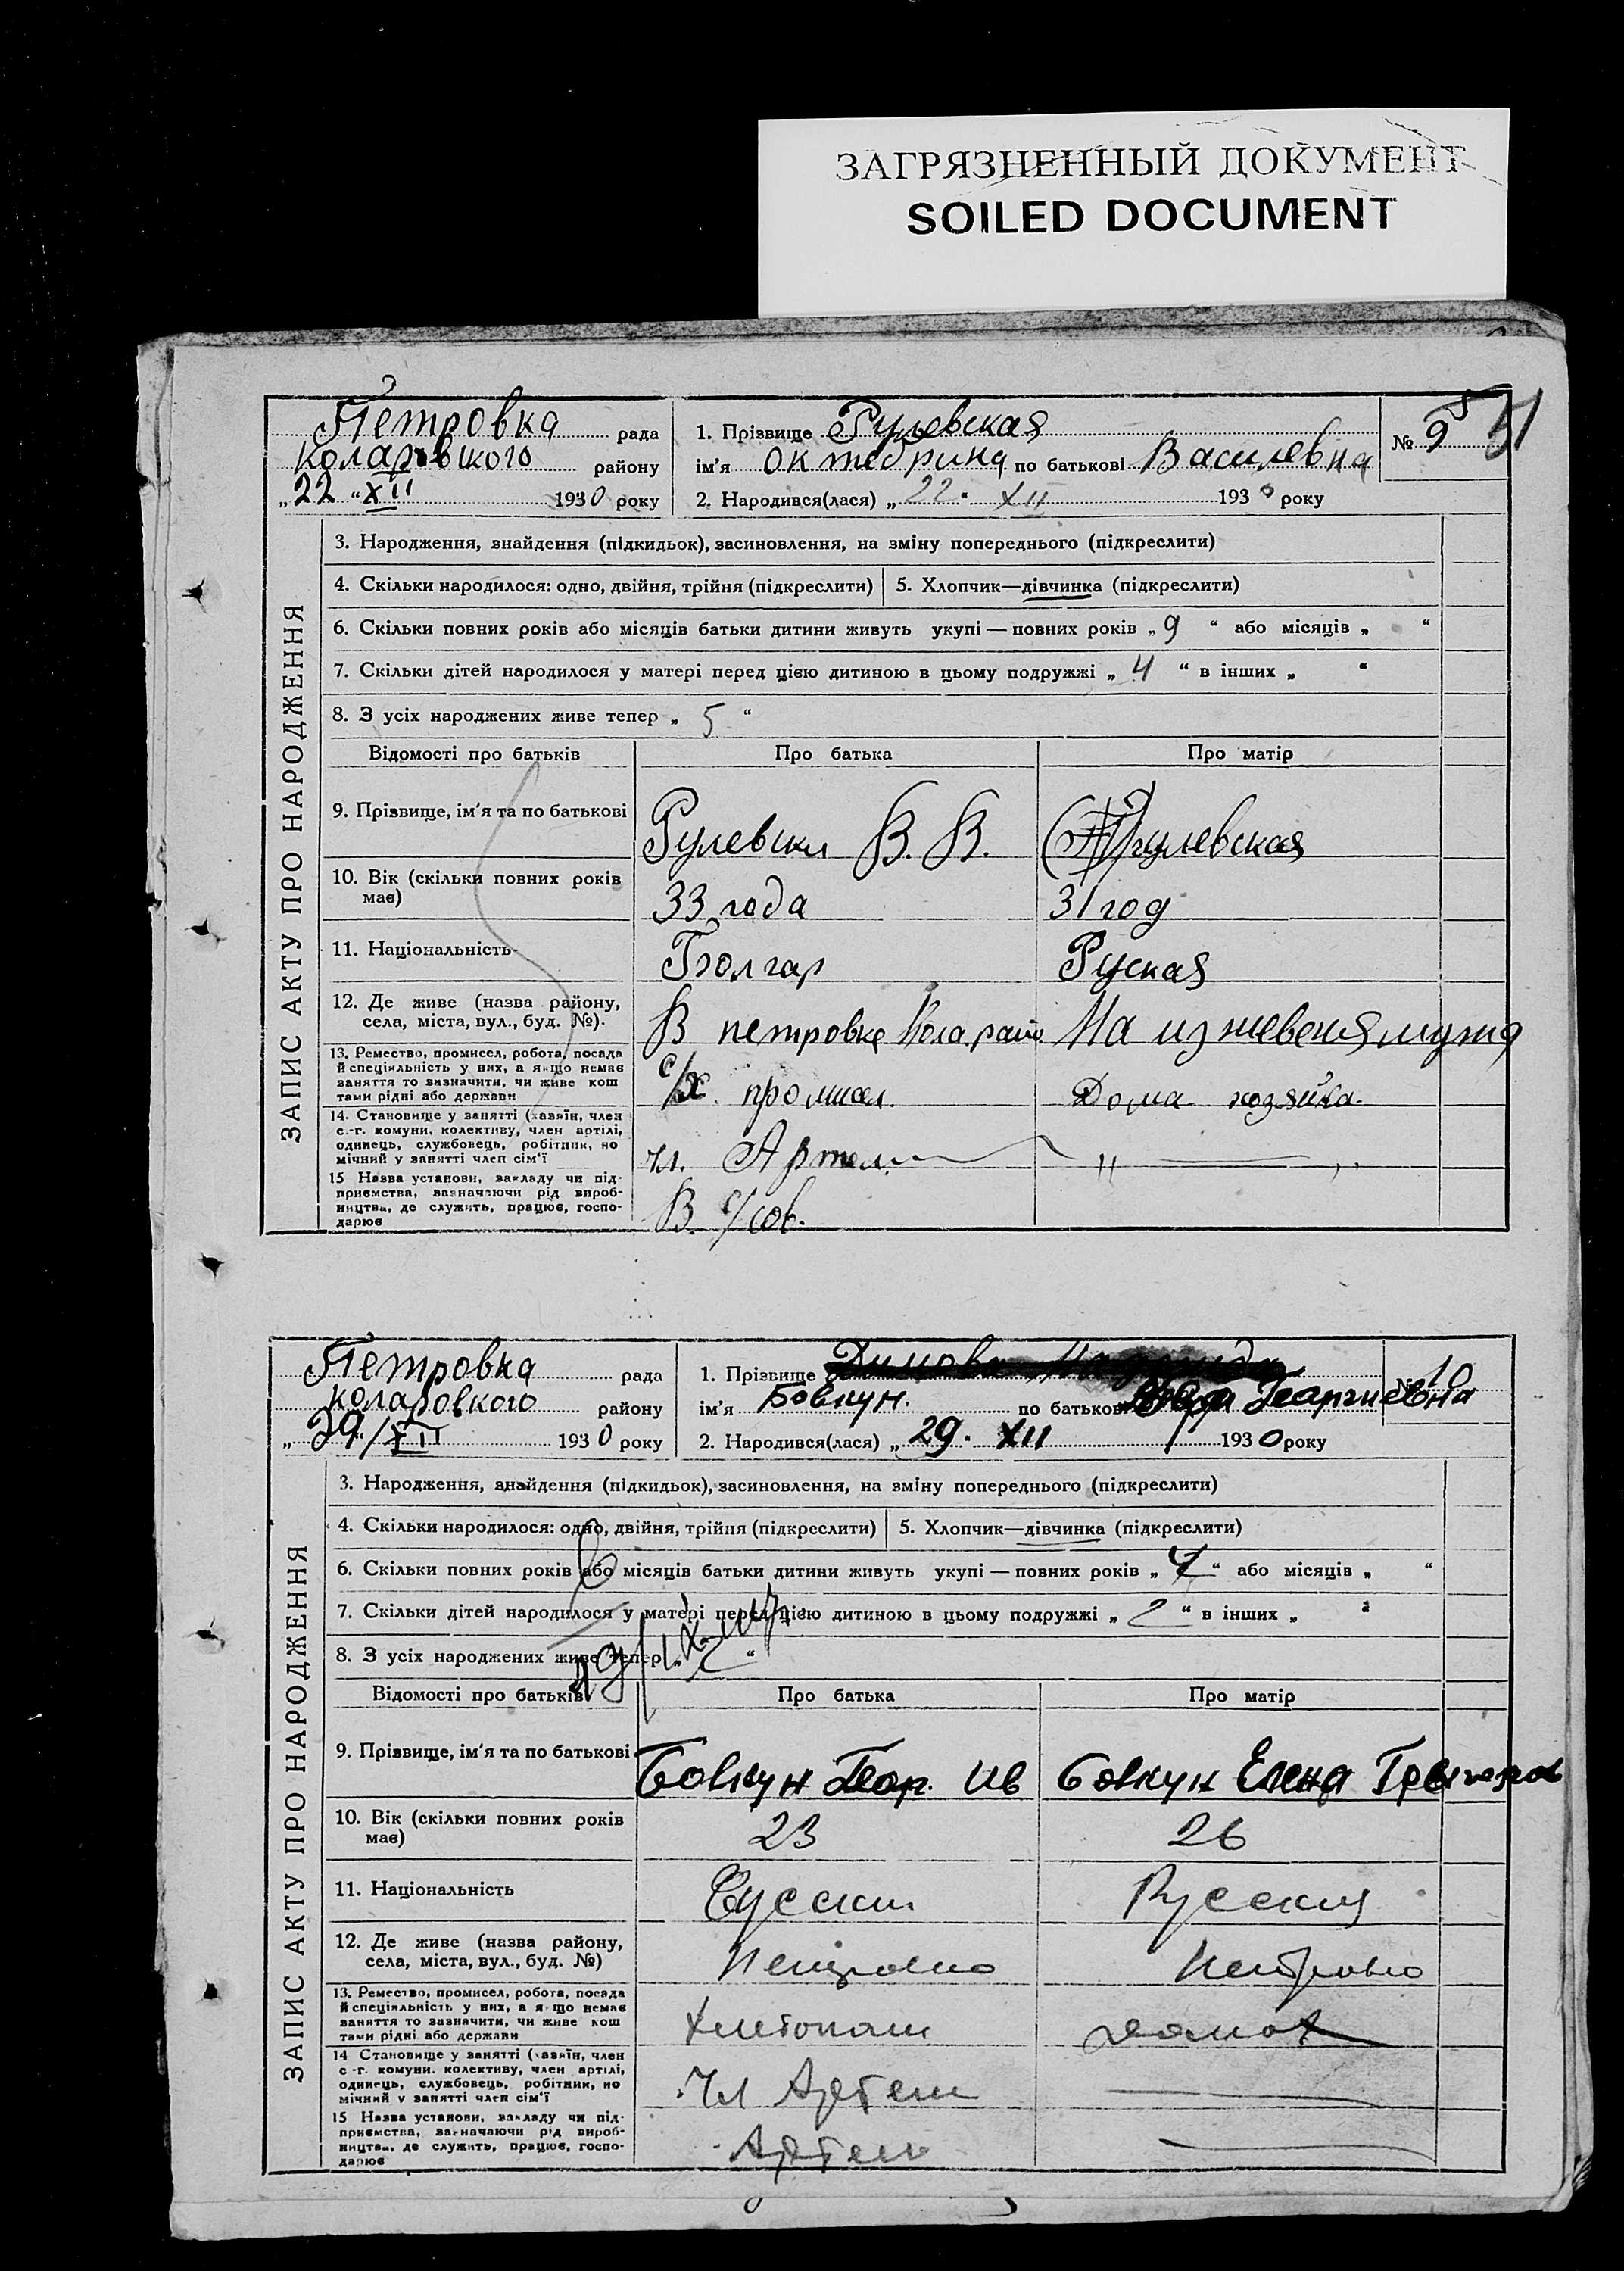 ЗАГРЯЗНЕННЫЙ ДОКУМЕНТ
SOILED DOCUMENT
51
ЗАПИС АКТУ ПРО НАРОДЖЕННЯ
Петровка рада
Коларовского району
„22“ XII 1930 року
1. Прізвище Рулевская
ім'я октебрина по батькові Василевна
2. Народився(лася) „22“ XII 1930 року
№ 9
3. Народження, знайдення (підкидьок), засиновлення, на зміну попереднього (підкреслити)
4. Скільки народилося: одно, двійня, трійня (підкреслити) 5. Хлопчик—дівчинка (підкреслити)
6. Скільки повних років або місяців батьки дитини живуть укупі — повних років „9“ або місяців „ “
7. Скільки дітей народилося у матері перед цією дитиною в цьому подружжі „4“ в інших „ “
8. З усіх народжених живе тепер „5“
Відомості про батьків Про батька Про матір
9. Прізвище, ім'я та по батькові Рулевски В. В. Рулевская
10. Вік (скільки повних років має) 33 года 31 год
11. Національність Болгар Руская
12. Де живе (назва району, села, міста, вул., буд. №). В петровке Кола. райо На изживеня мужа
13. Ремество, промисел, робота, посада й спеціяльність у них, а якщо немає заняття то зазначити, чи живе кош тами рідні або держави с/х. промисл. Дома хозяйка.
14. Становище у занятті (хазяїн, член с.-г. комуни, колективу, член артілі, одинець, службовець, робітник, по мічний у занятті член сім'ї чл. Артели — " —
15 Назва установи, закладу чи підприємства, зазначаючи рід виробництва, де служить, працює, господарює В. с/сов.
ЗАПИС АКТУ ПРО НАРОДЖЕННЯ
Петровка рада
Коларовкого району
„29“/XII 1930 року
1. Прізвище
ім'я Бовкун. по батькові Георгиевна
2. Народився(лася) „29“ XII 1930 року
№ 10
3. Народження, знайдення (підкидьок), засиновлення, на зміну попереднього (підкреслити)
4. Скільки народилося: одно, двійня, трійня (підкреслити) 5. Хлопчик—дівчинка (підкреслити)
6. Скільки повних років або місяців батьки дитини живуть укупі — повних років „ “ або місяців „ “
7. Скільки дітей народилося у матері перед цією дитиною в цьому подружжі „2“ в інших „ “
8. З усіх народжених живе тепер „2“
Відомості про батьків Про батька Про матір
9. Прізвище, ім'я та по батькові Бовкун Геор. Ив Бовкун Елена
10. Вік (скільки повних років має) 23 26
11. Національність Русски Русския
12. Де живе (назва району, села, міста, вул., буд. №) Петровка Петровка
13. Ремество, промисел, робота, посада й спеціяльність у них, а якщо немає заняття то зазначити, чи живе кош тами рідні або держави Хлебопаш
14 Становище у занятті (хазяїн, член с.-г. комуни. колективу, член артілі, одинець, службовець, робітник, по мічний у занятті член сім'ї Чл Артели
15 Назва установи, закладу чи підприємства, зазначаючи рід виробництва, де служить, працює, господарює Артели